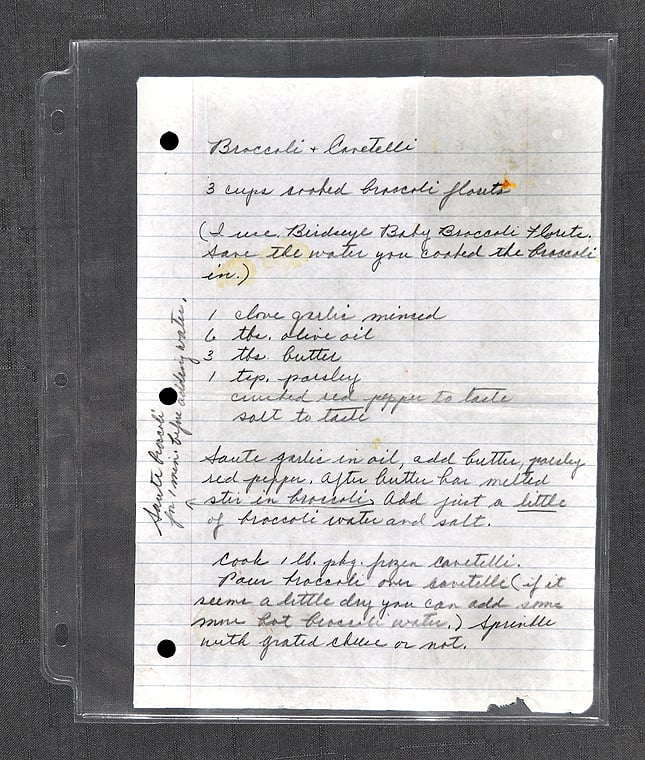 Broccoli + Cavetelli
3 cups cooked broccoli florets
(I use Birdseye Baby Broccoli Florets.
Save the water you cooked the broccoli
in.)
1 clove garlic minced
6 tbs. olive oil
3 tbs. butter
1 tsp. parsley
crushed red pepper to taste
salt to taste
Saute garlic in oil, add butter, parsley
red pepper. After butter has melted
stir in broccoli. Add just a little
of broccoli water and salt.
Saute broccoli
for 1 min. before adding water.
Cook 1 lb. pkg. frozen cavetelli.
Pour broccoli over cavetelli (if it
seems a little dry you can add some
more hot broccoli water.) Sprinkle
with grated cheese or not.